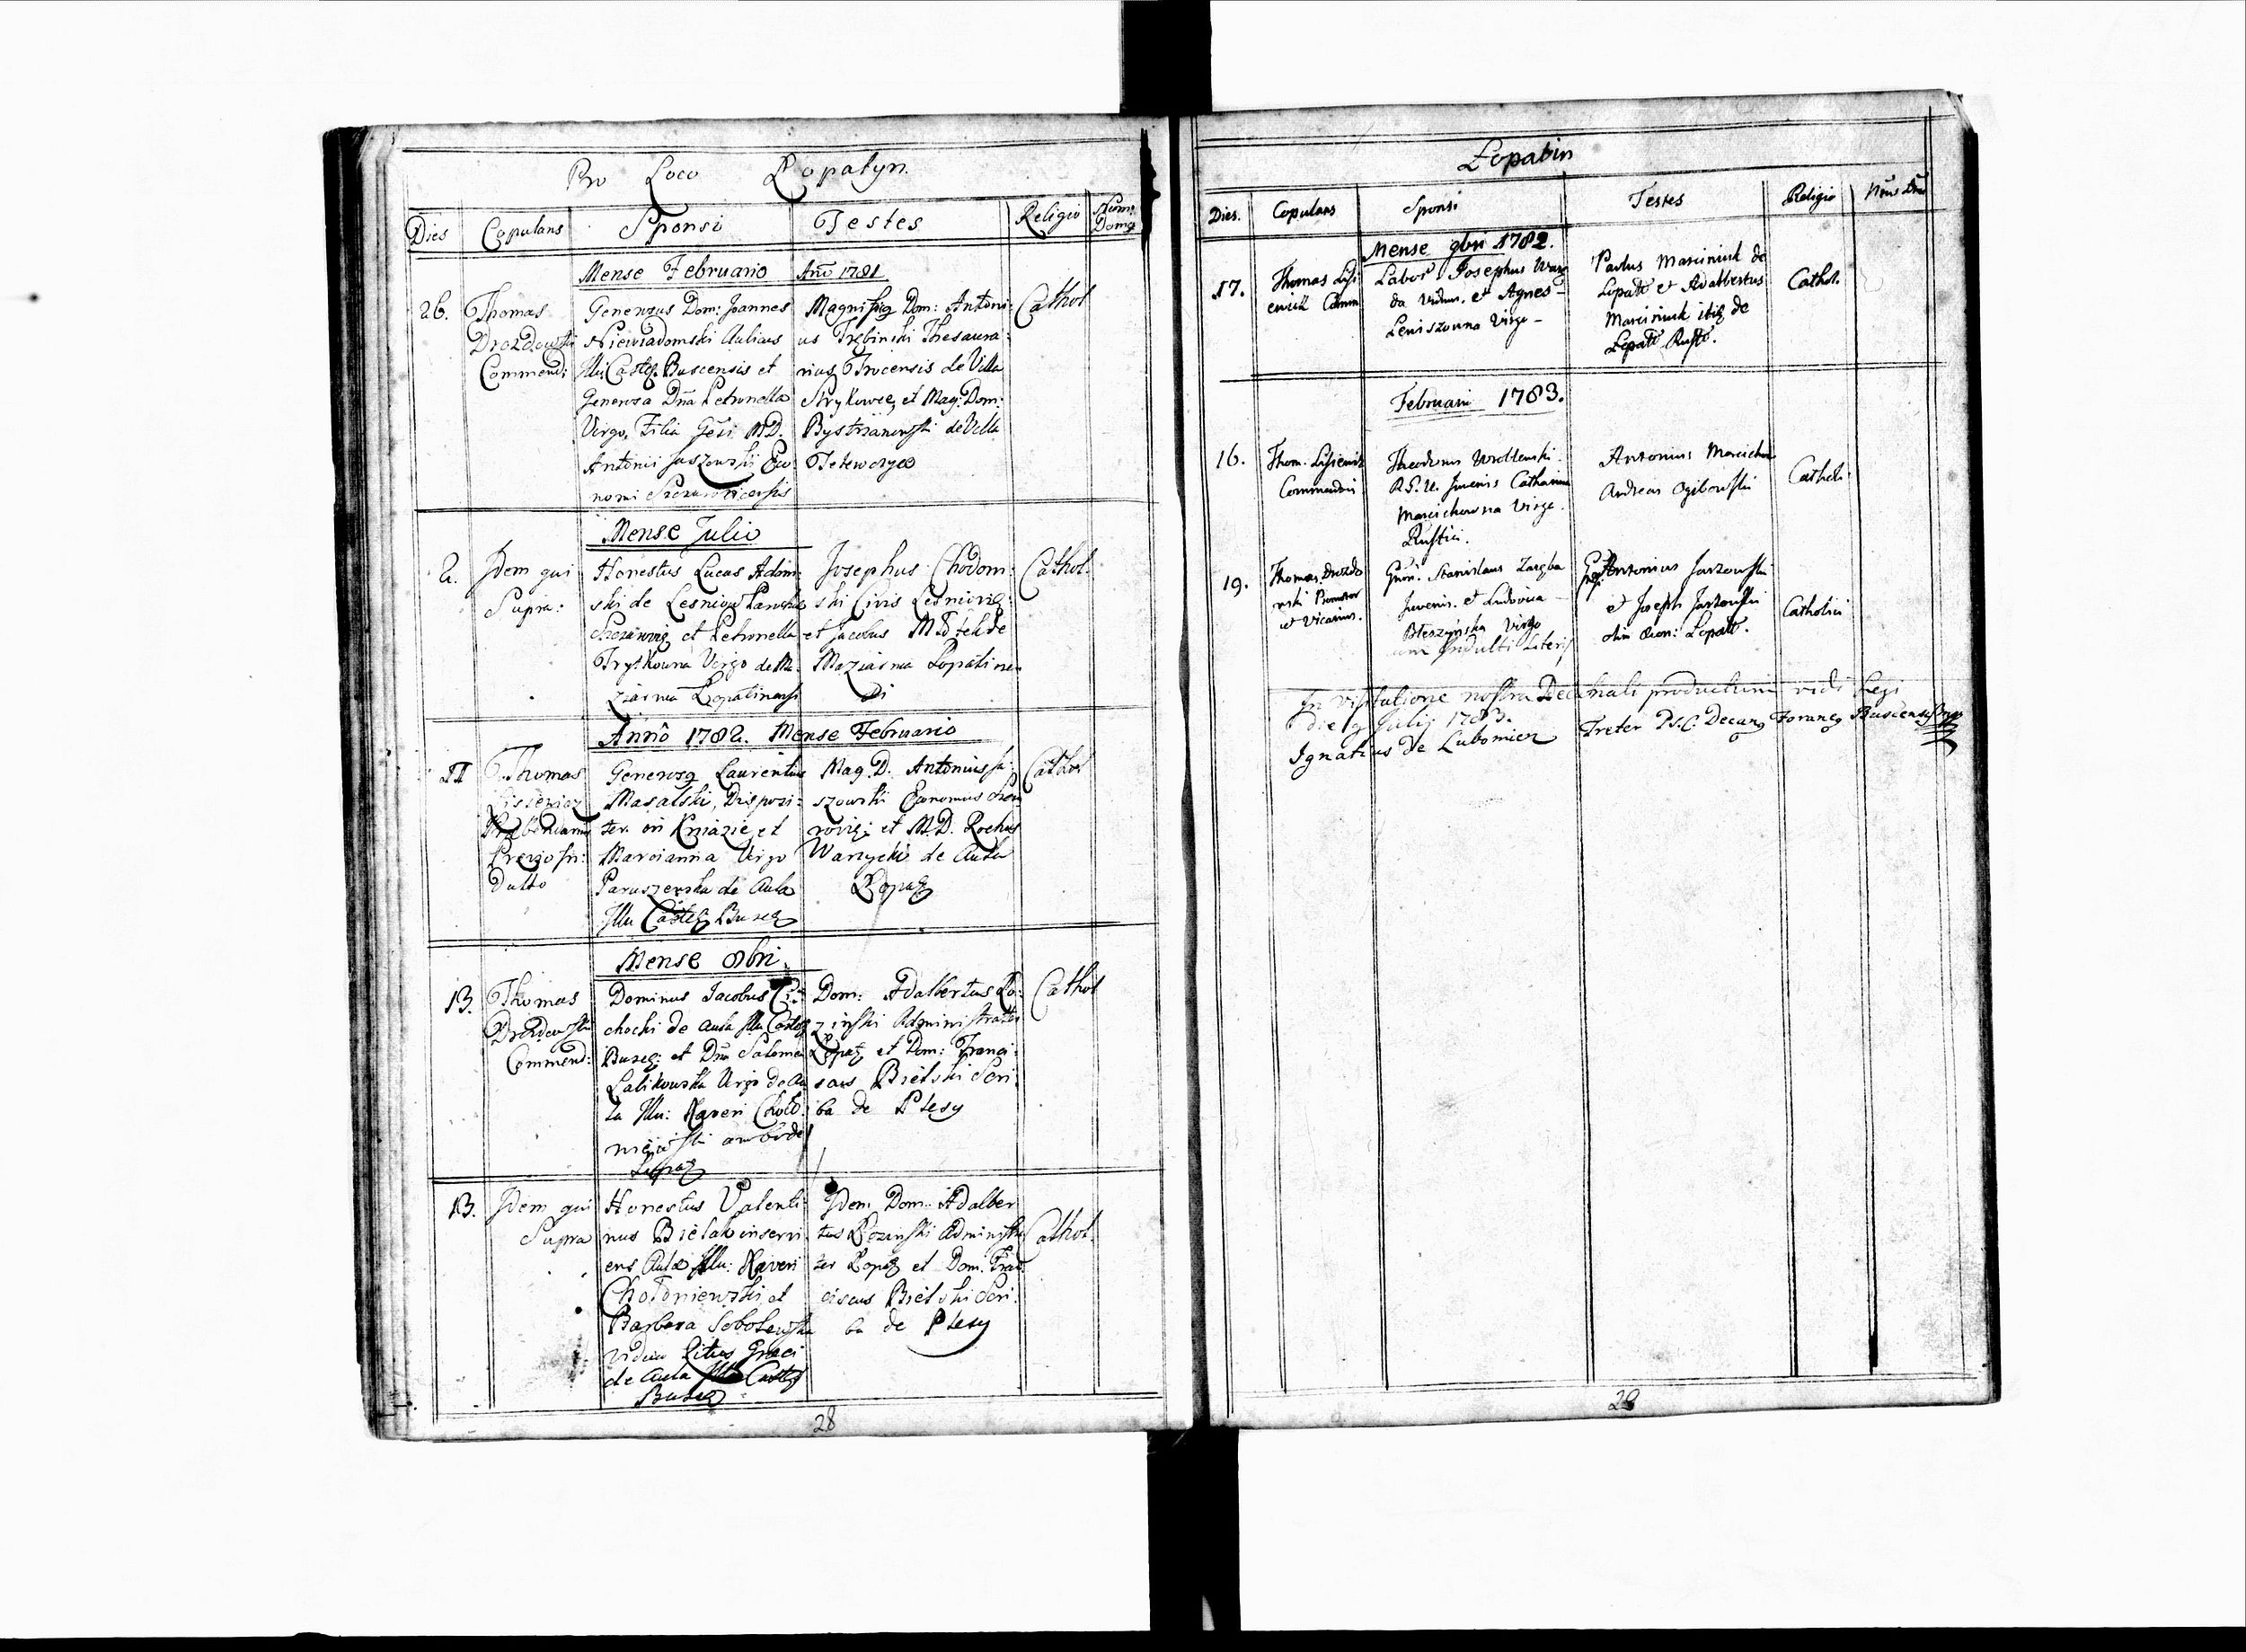 Pro Loco Łopatyn.
Dies Copulans Sponsi Testes Religio Num: Domg
Mense Februario Anō 1781
26. Thomas
Drozdowski
Commend:
Generosus Dom: Joannes
Niewiadomski Aulicus
Illu: Casteg. Buscensis et
Generosa Dña Petronella
Virgo, Filia Gēsi M.D.
Antonii Juszowski Eco
nomi Szczurovicensis
Magnificg Dom: Antoni
us Trębinski Thesaura
rius Trocensis de Villa
Strykowce, et Mag. Dom:
Bystrzanowski de Villa
Tetewczyce
Cathol
Mense Julio
2. Jdem qui
Supra:
Honestus Lucas Adam
ski de Lesniow
et Petronella
Trytkowna Virgo de Ma
ziarnia Łopatinensi
Josephus Chodom
ski Civis Lesniovig:
et Jacobus de
Maziarnia Łopatinen
di
Cathol.
Annô 1782. Mense Februario
11 Thomas
Lissewicz
Præbendarius
Generosg Laurentius
Masalski, Dispozi
tor in Kniazie, et
Marcianna Virgo
Paruszewska de Aula
Illu Casteg Buseg
Mag. D. Antonius Ju
szowski Œconomus
rovig: et M.D. Rochus
Warzycki de Aula
Łopag
Cathol
Mense 8bri.
13. Thomas
Drozdowski
Commend:
Dominus Jacobus Ci
chocki de Aula Illu Casteg
Buseg: et Dña Salomea
Lalikowska Virgo de Au
la Illu: Xaveri Chołd
niewski ambo de
Łopag
Dom: Adalbertus Ło
zinski Administrator
Łopag et Dom: Franci
scus Bielski Scri
ba de Plesy
Cathol
13. Jdem qui
Supra
Honestus Valenti
nus Bielak inservi
ens Aulæ Illu: Xaveri
Chołoniewski et
Barbara Sobolewska
vidua Ritus Græci
de Aula Illu Casteg
Buseg
Jdem Dom: Adalber
tus Łozinski Administra
tor Łopag et Dom. Fran
ciscus Bielski Scri
ba de Plesy
Cathol.
28
Łopatin
Dies. Copulans Sponsi Testes Religio Nrus Dm̄
Mense 9bri 1782.
17. Thomas Lisi
ewicz Comm
Labor Josephus War
da Viduus. et Agnes
Leniszowna Virgo
Paulus Marciniuk de
Łopatt et Adalbertus
Marciniuk itig de
Łopatt Rusti.
Cathol.
Februarii 1783.
16. Thom. Lisiewicz
Commendari
Theodorus Wrollewski
R.G.U. Juvenis Catharina
Marcichowna Virgo.
Rustici.
Antonius Marcichow
Andreas Ogibowski
Catholi
19. Thomas Drozdo
wski Promotor
et Vicarius.
Gnōs. Stanislaus Zaręba
Juvenis. et Ludovica
Błeszynska Virgo
cum Indulti Literis
Antonius Jaszowski
et Joseph Jaszowski
olim Œcon: Łopatt.
Catholici
In visitatione nostra Decanali productum vidi Legi
die 9 Julij 1783.
Ignatius de Lubomierz Treter P.S.C. Decang Foraneg Buscensis mp
28